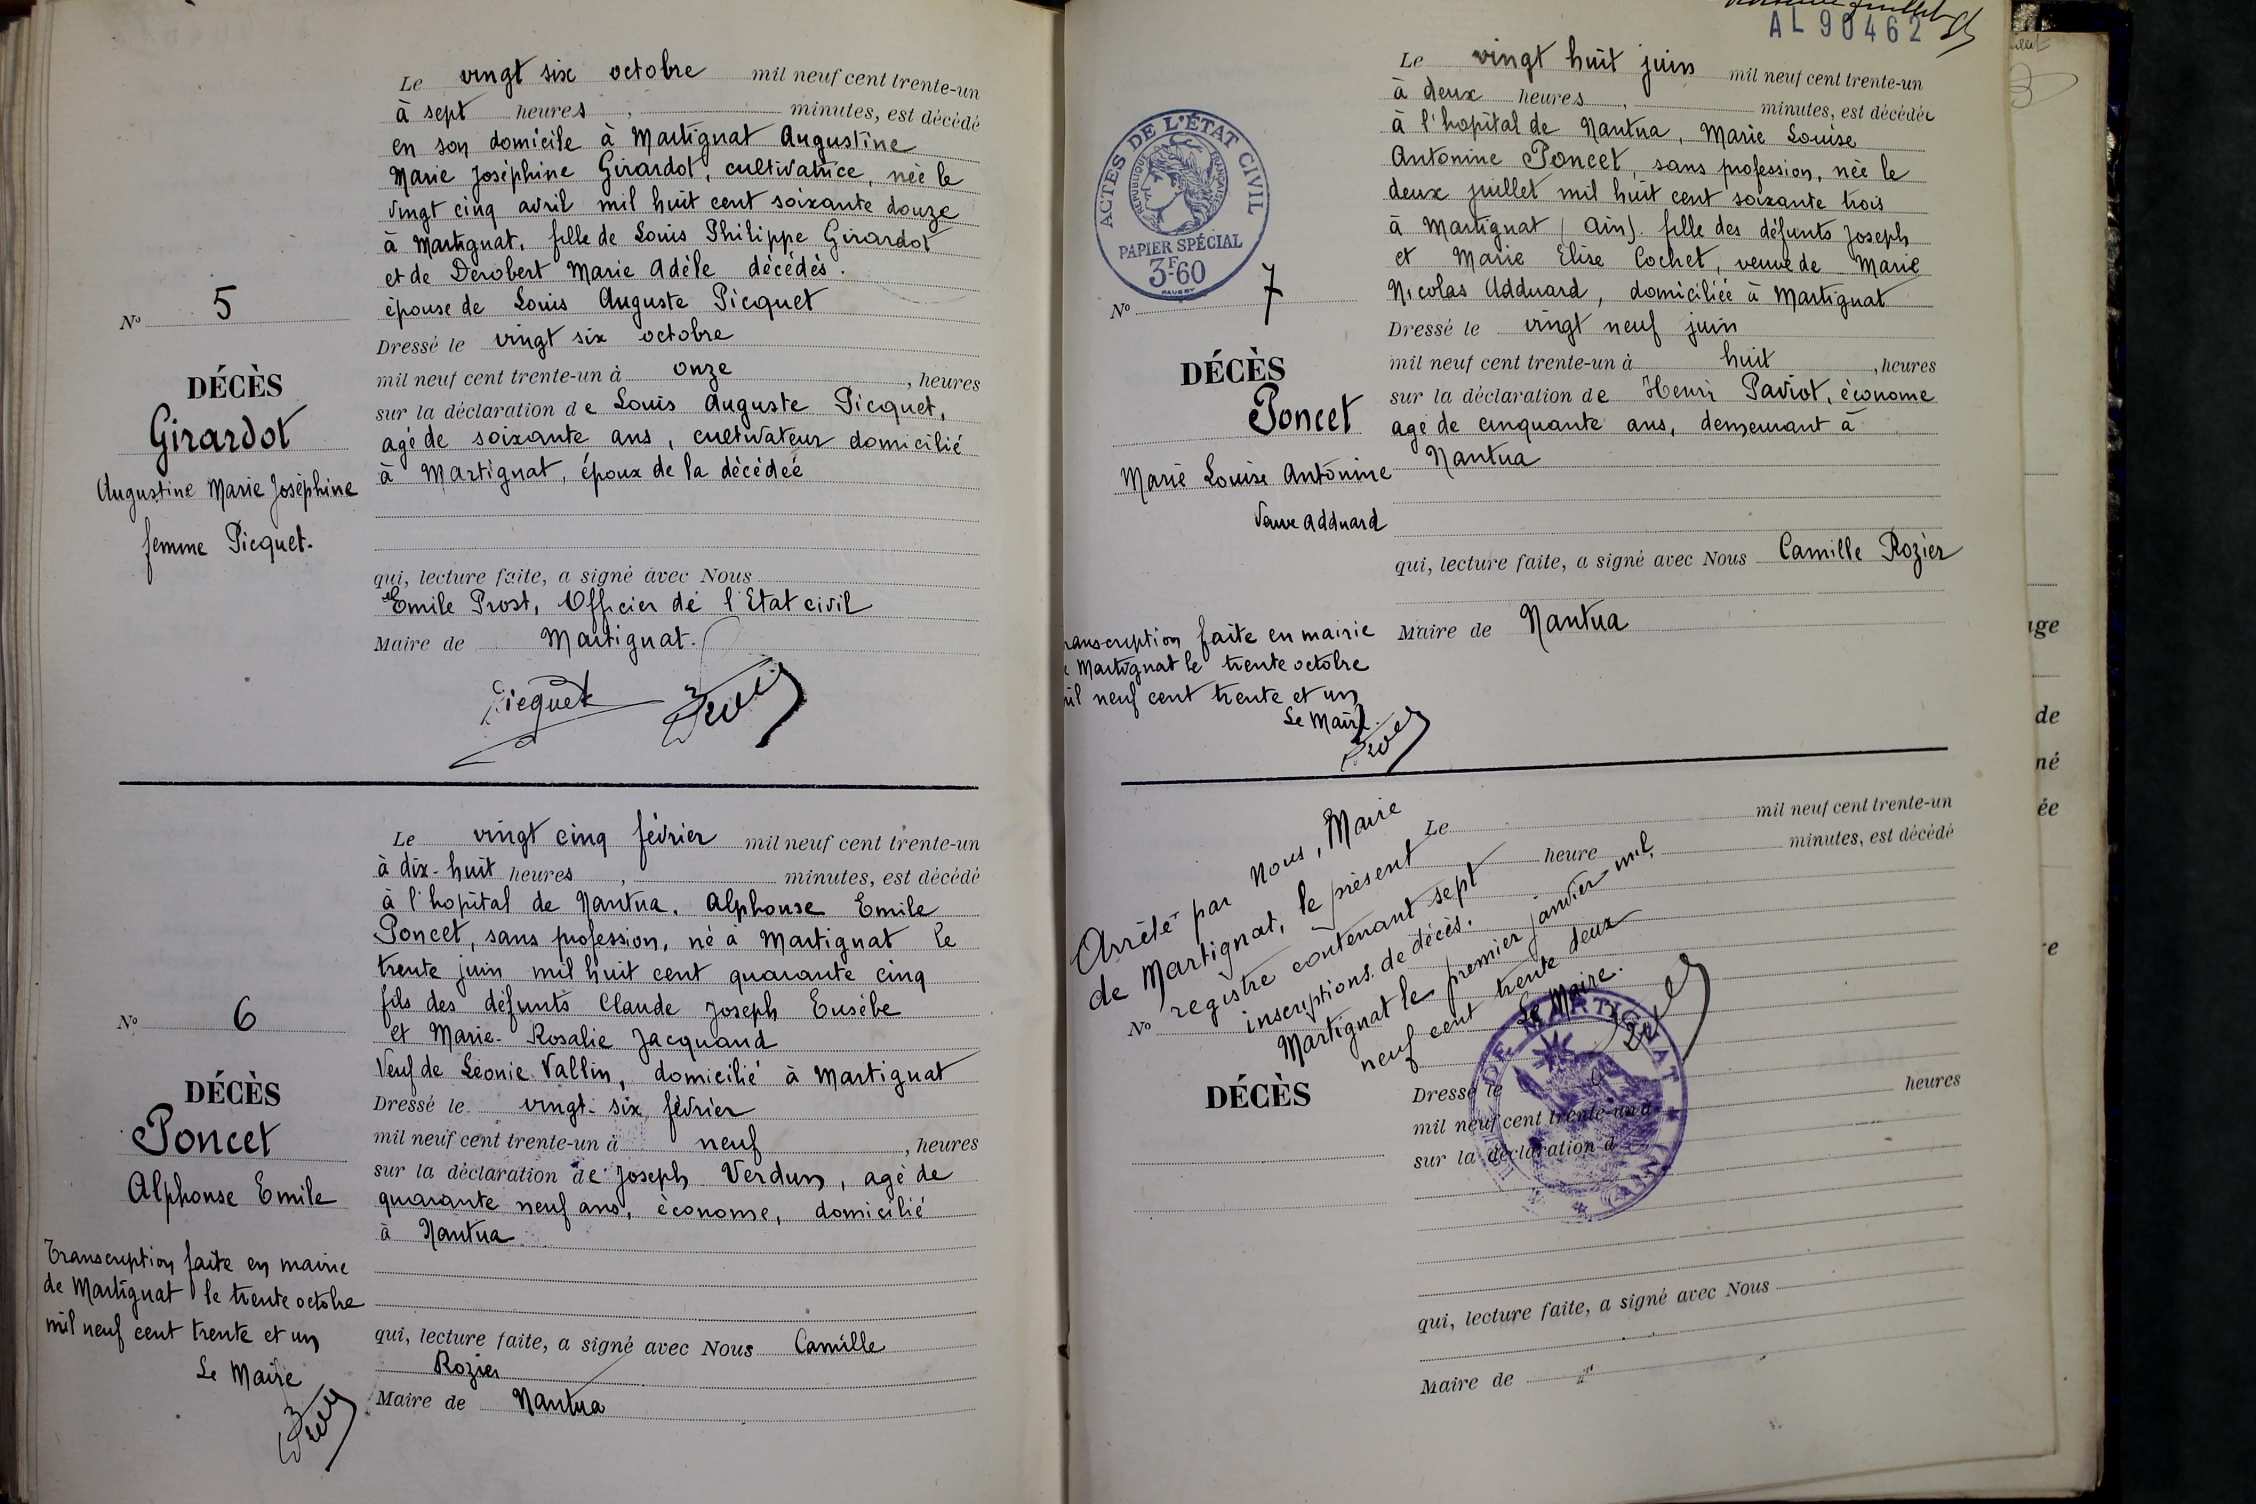 Le vingt six octobre mil neuf cent trente-un
à sept heures, minutes, est décédé
en son domicile à Martignat Augustine
Marie Joséphine Girardot, cultivatrice, née le
vingt cinq avril mil huit cent soixante douze
à Martignat, fille de Louis Philippe Girardot
et de Derobert Marie Adèle décédés.
épouse de Louis Auguste Picquet
Dressé le vingt six octobre
mil neuf cent trente-un à onze, heures
sur la déclaration de Louis Auguste Picquet,
agé de soixante ans, cultivateur domicilié
à Martignat, époux de la décédeé
qui, lecture faite, a signé avec Nous
Emile Prost, Officier de l'Etat civil
Maire de Martignat.
Picquet
No 5
DÉCÈS
Girardot
Augustine Marie Joséphine
femme Picquet.
Le vingt cinq février mil neuf cent trente-un
à dix-huit heures, minutes, est décédé
à l'hopital de Nantua, Alphonse Emile
Poncet, sans profession, né à Martignat le
trente juin mil huit cent quarante cinq
fils des défunts Claude Joseph Eusébe
et Marie-Rosalie Jacquand
Veuf de Léonie Vallin, domicilié à Martignat
Dressé le vingt-six février
mil neuf cent trente-un à neuf, heures
sur la déclaration de Joseph Verdun, agé de
quarante neuf ans, économe, domicilié
à Nantua
qui, lecture faite, a signé avec Nous Camille
Rozier
Maire de Nantua
No 6
DÉCÈS
Poncet
Alphonse Emile
Transcription faite en mairie
de Martignat le trente octobre
mil neuf cent trente et un
Le Maire
AL 90462
Le vingt huit juin mil neuf cent trente-un
à deux heures, minutes, est décédée
à l'hopital de Nantua, Marie Louise
Antonine Poncet, sans profession, née le
deux juillet mil huit cent soixante trois
à Martignat (Ain). fille des défunts Joseph
et Marie Elise Cochet, veuve de Marie
Nicolas Adduard, domiciliée à Martignat
Dressé le vingt neuf juin
mil neuf cent trente-un à huit, heures
sur la déclaration de Henri Paviot, économe
agé de cinquante ans, demeurant à
Nantua
qui, lecture faite, a signé avec Nous Camille Rozier
Maire de Nantua
ACTES DE L'ÉTAT CIVIL
RÉPUBLIQUE FRANÇAISE
PAPIER SPÉCIAL
3F-60
No 7
DÉCÈS
Poncet
Marie Louise Antonine
Veuve Adduard
ranscription faite en mairie
e Martignat le trente octobre
il neuf cent trente et un
Le Maire.
Le mil neuf cent trente-un
heure minutes, est décédé
Arrêté par nous, Maire
de Martignat, le présent
registre contenant sept
inscriptions de décès.
Martignat le premier janvier mil
neuf cent trente deux
Le Maire.
No
DÉCÈS
Dressé le
mil neuf cent trente-un à heures
sur la déclaration d
DE MARTIGNAT
(AIN)
qui, lecture faite, a signé avec Nous
Maire de
age
de
né
ée
e